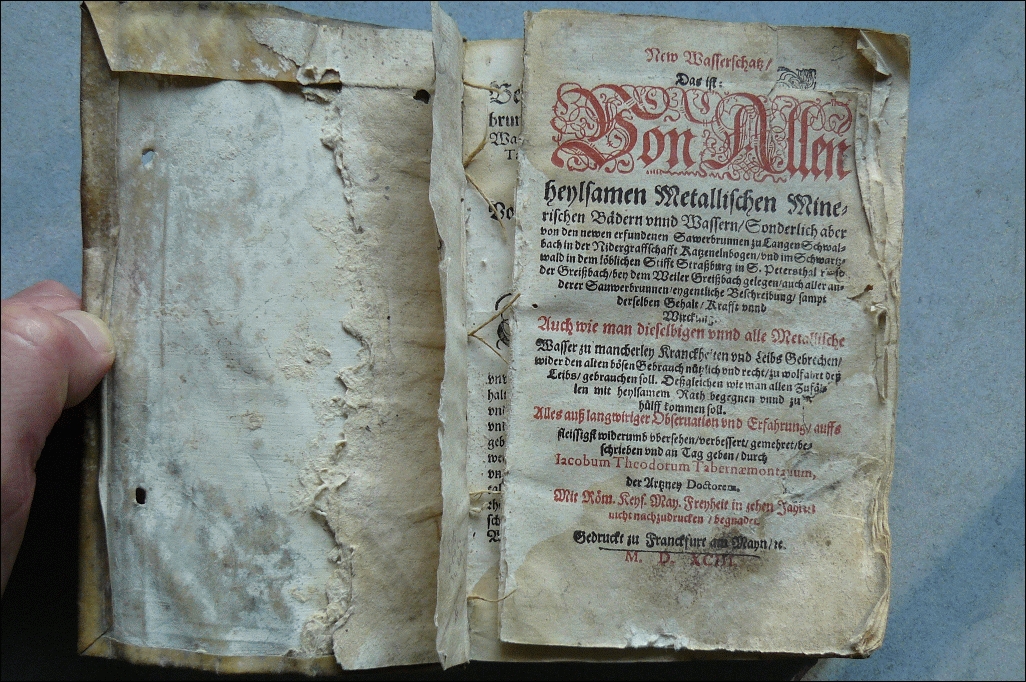 Be
brun
Wa
T
Vo
vnd
halt
vnt
vnt
geb
wei
vn
sch
New Wasserschatz/
Das ist:
Von Allen
heylsamen Metallischen Mine-
rischen Bädern vnnd Wassern/Sonderlich aber
von den newen erfundenen Sawerbrunnen zu Langen Schwal-
bach in der Nidergraffschafft Katzenelnbogen/vnd im Schwartz-
wald in dem löblichen Stifft Straßburg in S. Petersthal
der Greißbach/bey dem Weiler Greißbach gelegen/auch aller an-
derer Sauwerbrunnen/eygentliche Beschreibung/ sampt
derselben Gehalt/Krafft vnnd
Wirckung.
Auch wie man dieselbigen vnnd alle Metallische
Wasser zu mancherley Kranckheiten vnd Leibs Gebrechen/
wider den alten bösen Gebrauch nützlich vnd recht/zu wolfahrt deß
Leibs/gebrauchen soll. Deßgleichen wie man allen Zufäl-
len mit heylsamem Rath begegnen vnnd zu
hülff kommen soll.
Alles auß langwiriger Obseruation vnd Erfahrung/auffs
fleissigst widerumb vbersehen/verbessert/gemehret/be-
schrieben vnd an Tag geben/durch
Iacobum Theodorum Tabernæmontanum,
der Artzney Doctorem.
Mit Röm. Keys. May. Freyheit in zehen Jahren
nicht nachzudrucken/begnadet.
Gedruckt zu Franckfurt am Mayn/ꝛc.
M. D. XCIII.